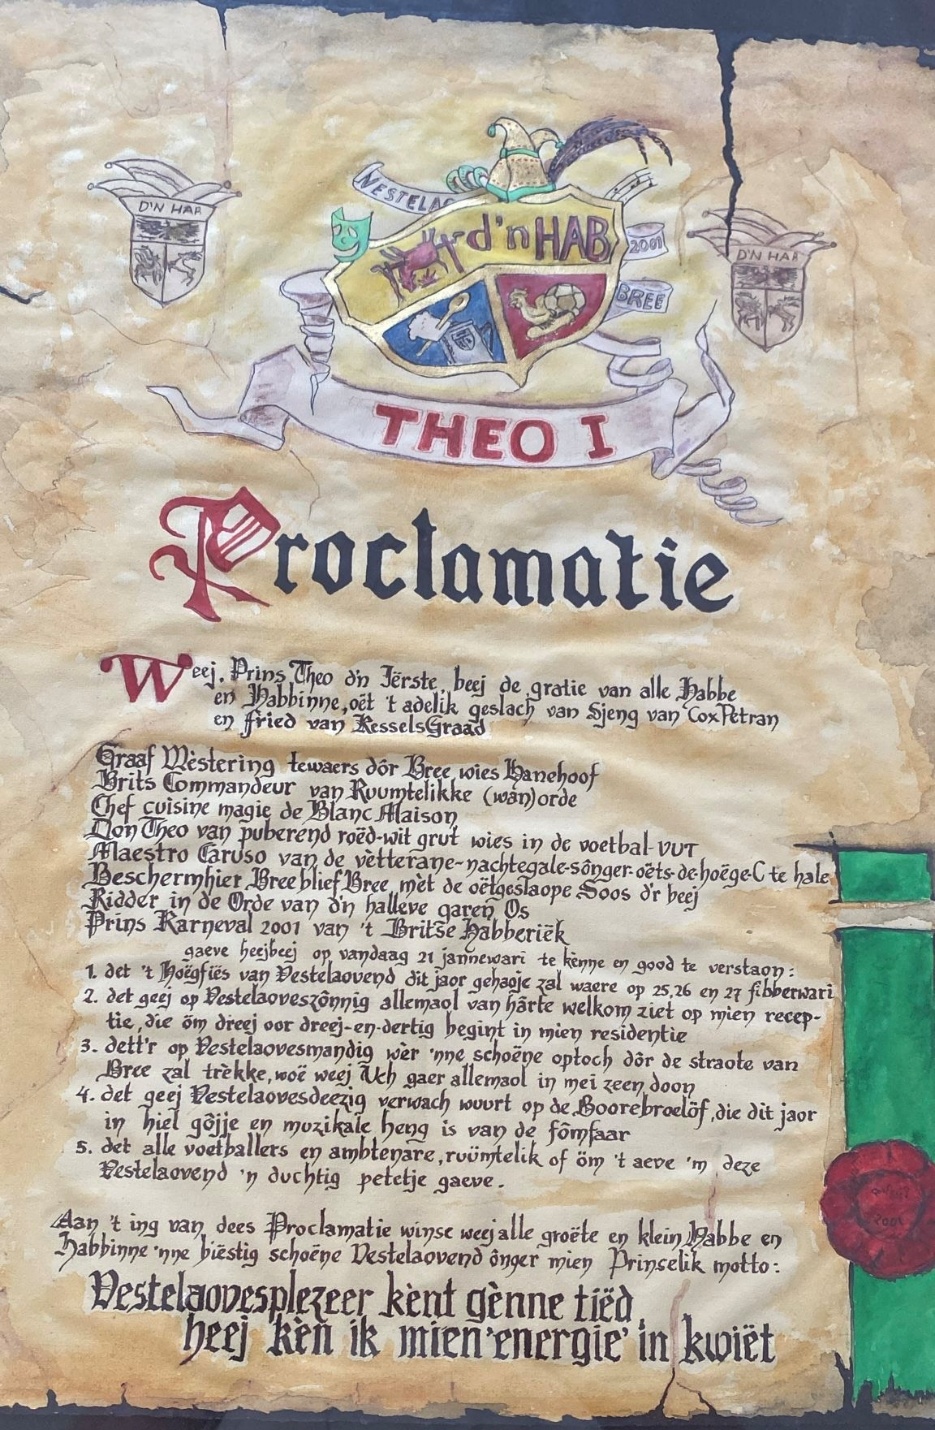 D'N HAB
NESTELAO
d'n HAB
2001
BREE
D'N HAB
THEO I
Proclamatie
Weej. Prins Theo d'n Iërste, beej de gratie van alle Habbe
en Habbinne, oët 't adelik geslach van Sjeng van Cox Petran
en fried van Kessels Graad
Graaf Wèstering tewaers dôr Bree wies Hanehoof
Brits Commandeur van Ruumtelikke (wan)orde
Chef cuisine magie de Blanc Maison
Don Theo van puberend roëd-wit grut wies in de voetbal-VUT
Maestro Caruso van de vètterane-nachtegale-sônger-oëts-de-hoëge-C te hale
Beschermhier Bree blief Bree, mèt de oëtgeslaope Soos d'r beej
Ridder in de Orde van d'n halleve garen Os
Prins Karneval 2001 van 't Britse Habberiëk
gaeve heejbeej op vandaag 21 jannewari te kènne en good te verstaon:
1. det 't Hoëgfiës van Vestelaovend dit jaor gehaoje zal waere op 25, 26 en 27 fibberwari
2. det geej op Vestelaoveszônnig allemaol van hârte welkom ziet op mien recep-
tie, die ôm dreej oor dreej-en-dertig begint in mien residentie
3. dett'r op Vestelaovesmandig wèr 'nne schoëne optoch dôr de straote van
Bree zal trèkke, woë weej Uch gaer allemaol in mei zeen doon
4. det geej Vestelaovesdeezig verwach wuurt op de Boorebroelôf, die dit jaor
in hiel gôjje en muzikale heng is van de fômfaar
5. det alle voetballers en ambtenare, ruümtelik of ôm 't aeve 'm deze
Vestelaovend 'n duchtig petetje gaeve.
Aan 't ing van dees Proclamatie winse weej alle groëte en klein Habbe en
Habbinne 'nne biëstig schoëne Vestelaovend ônger mien Prinselik motto:
Vestelaovesplezeer kènt gènne tiëd,
heej kèn ik mien 'energie' in kwiët
2001